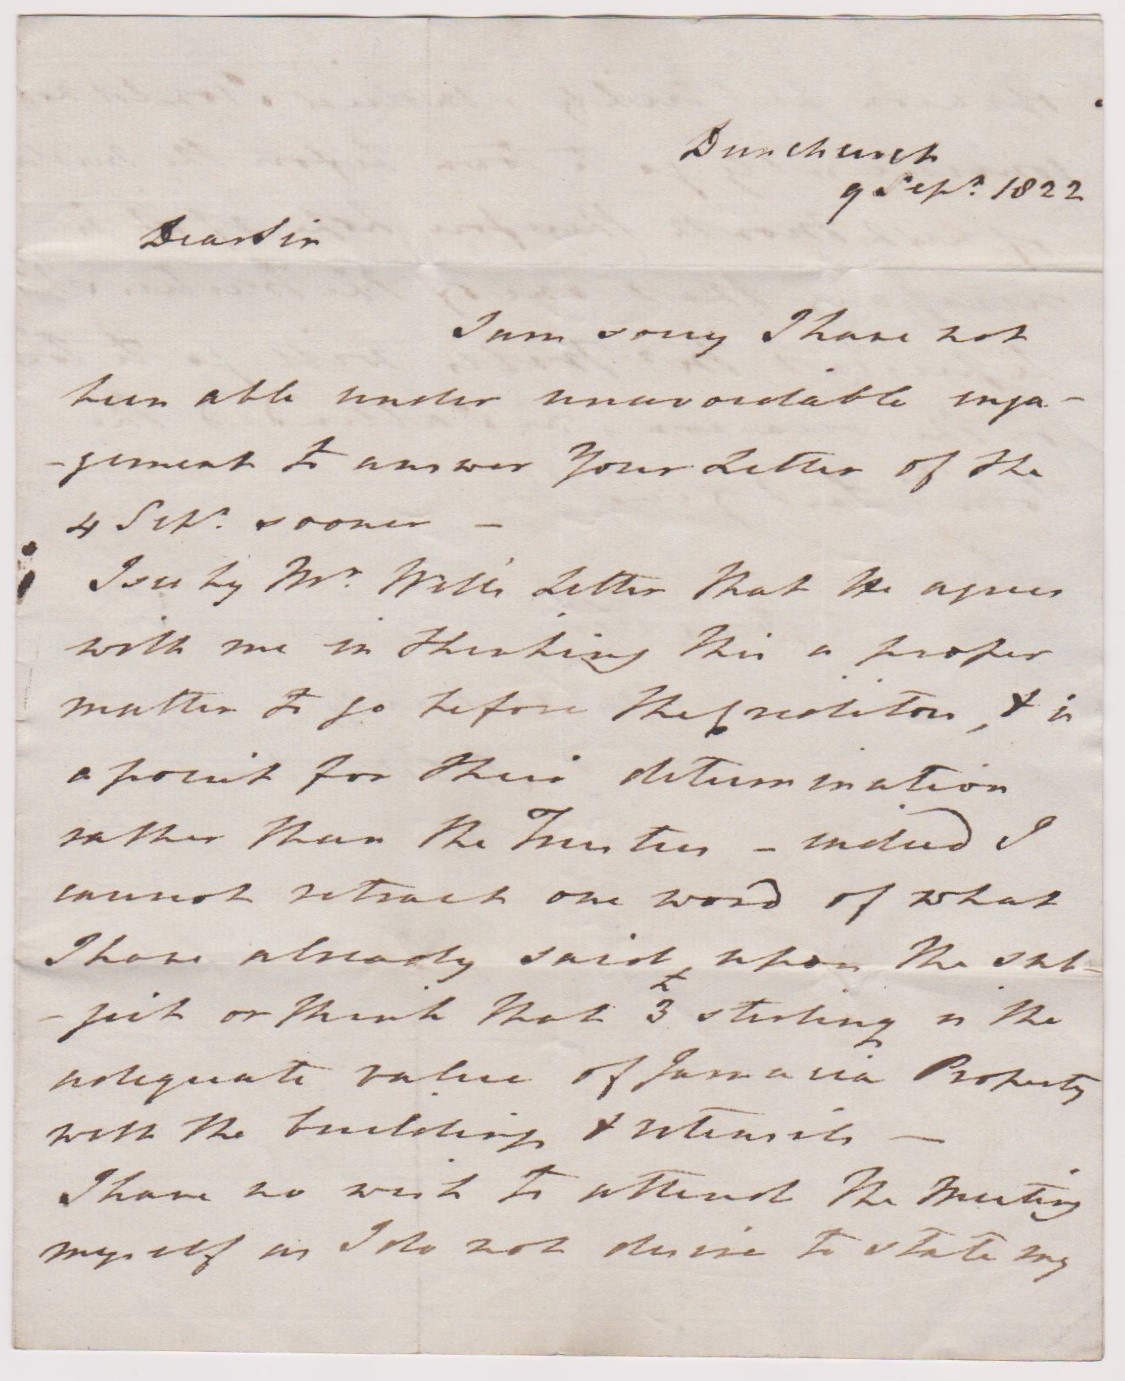 Dunchurch
9 Sepr. 1822
Dear Sir
I am sorry I have not
been able under unavoidable enga-
-gement to answer Your Letter of the
4 Sepr. sooner -
I see by Mr. Wills Letter that he agrees
with me in thinking this a proper
matter to go before the Creditors, & is
a point for their determination
rather than the Trustees - indeed I
cannot retract one word of what
I have already said upon the sub-
-ject or think that £3 sterling is the
adequate value of Jamaica Property
with the buildings & utensils -
I have no wish to attend the Meeting
myself as I do not desire to state my